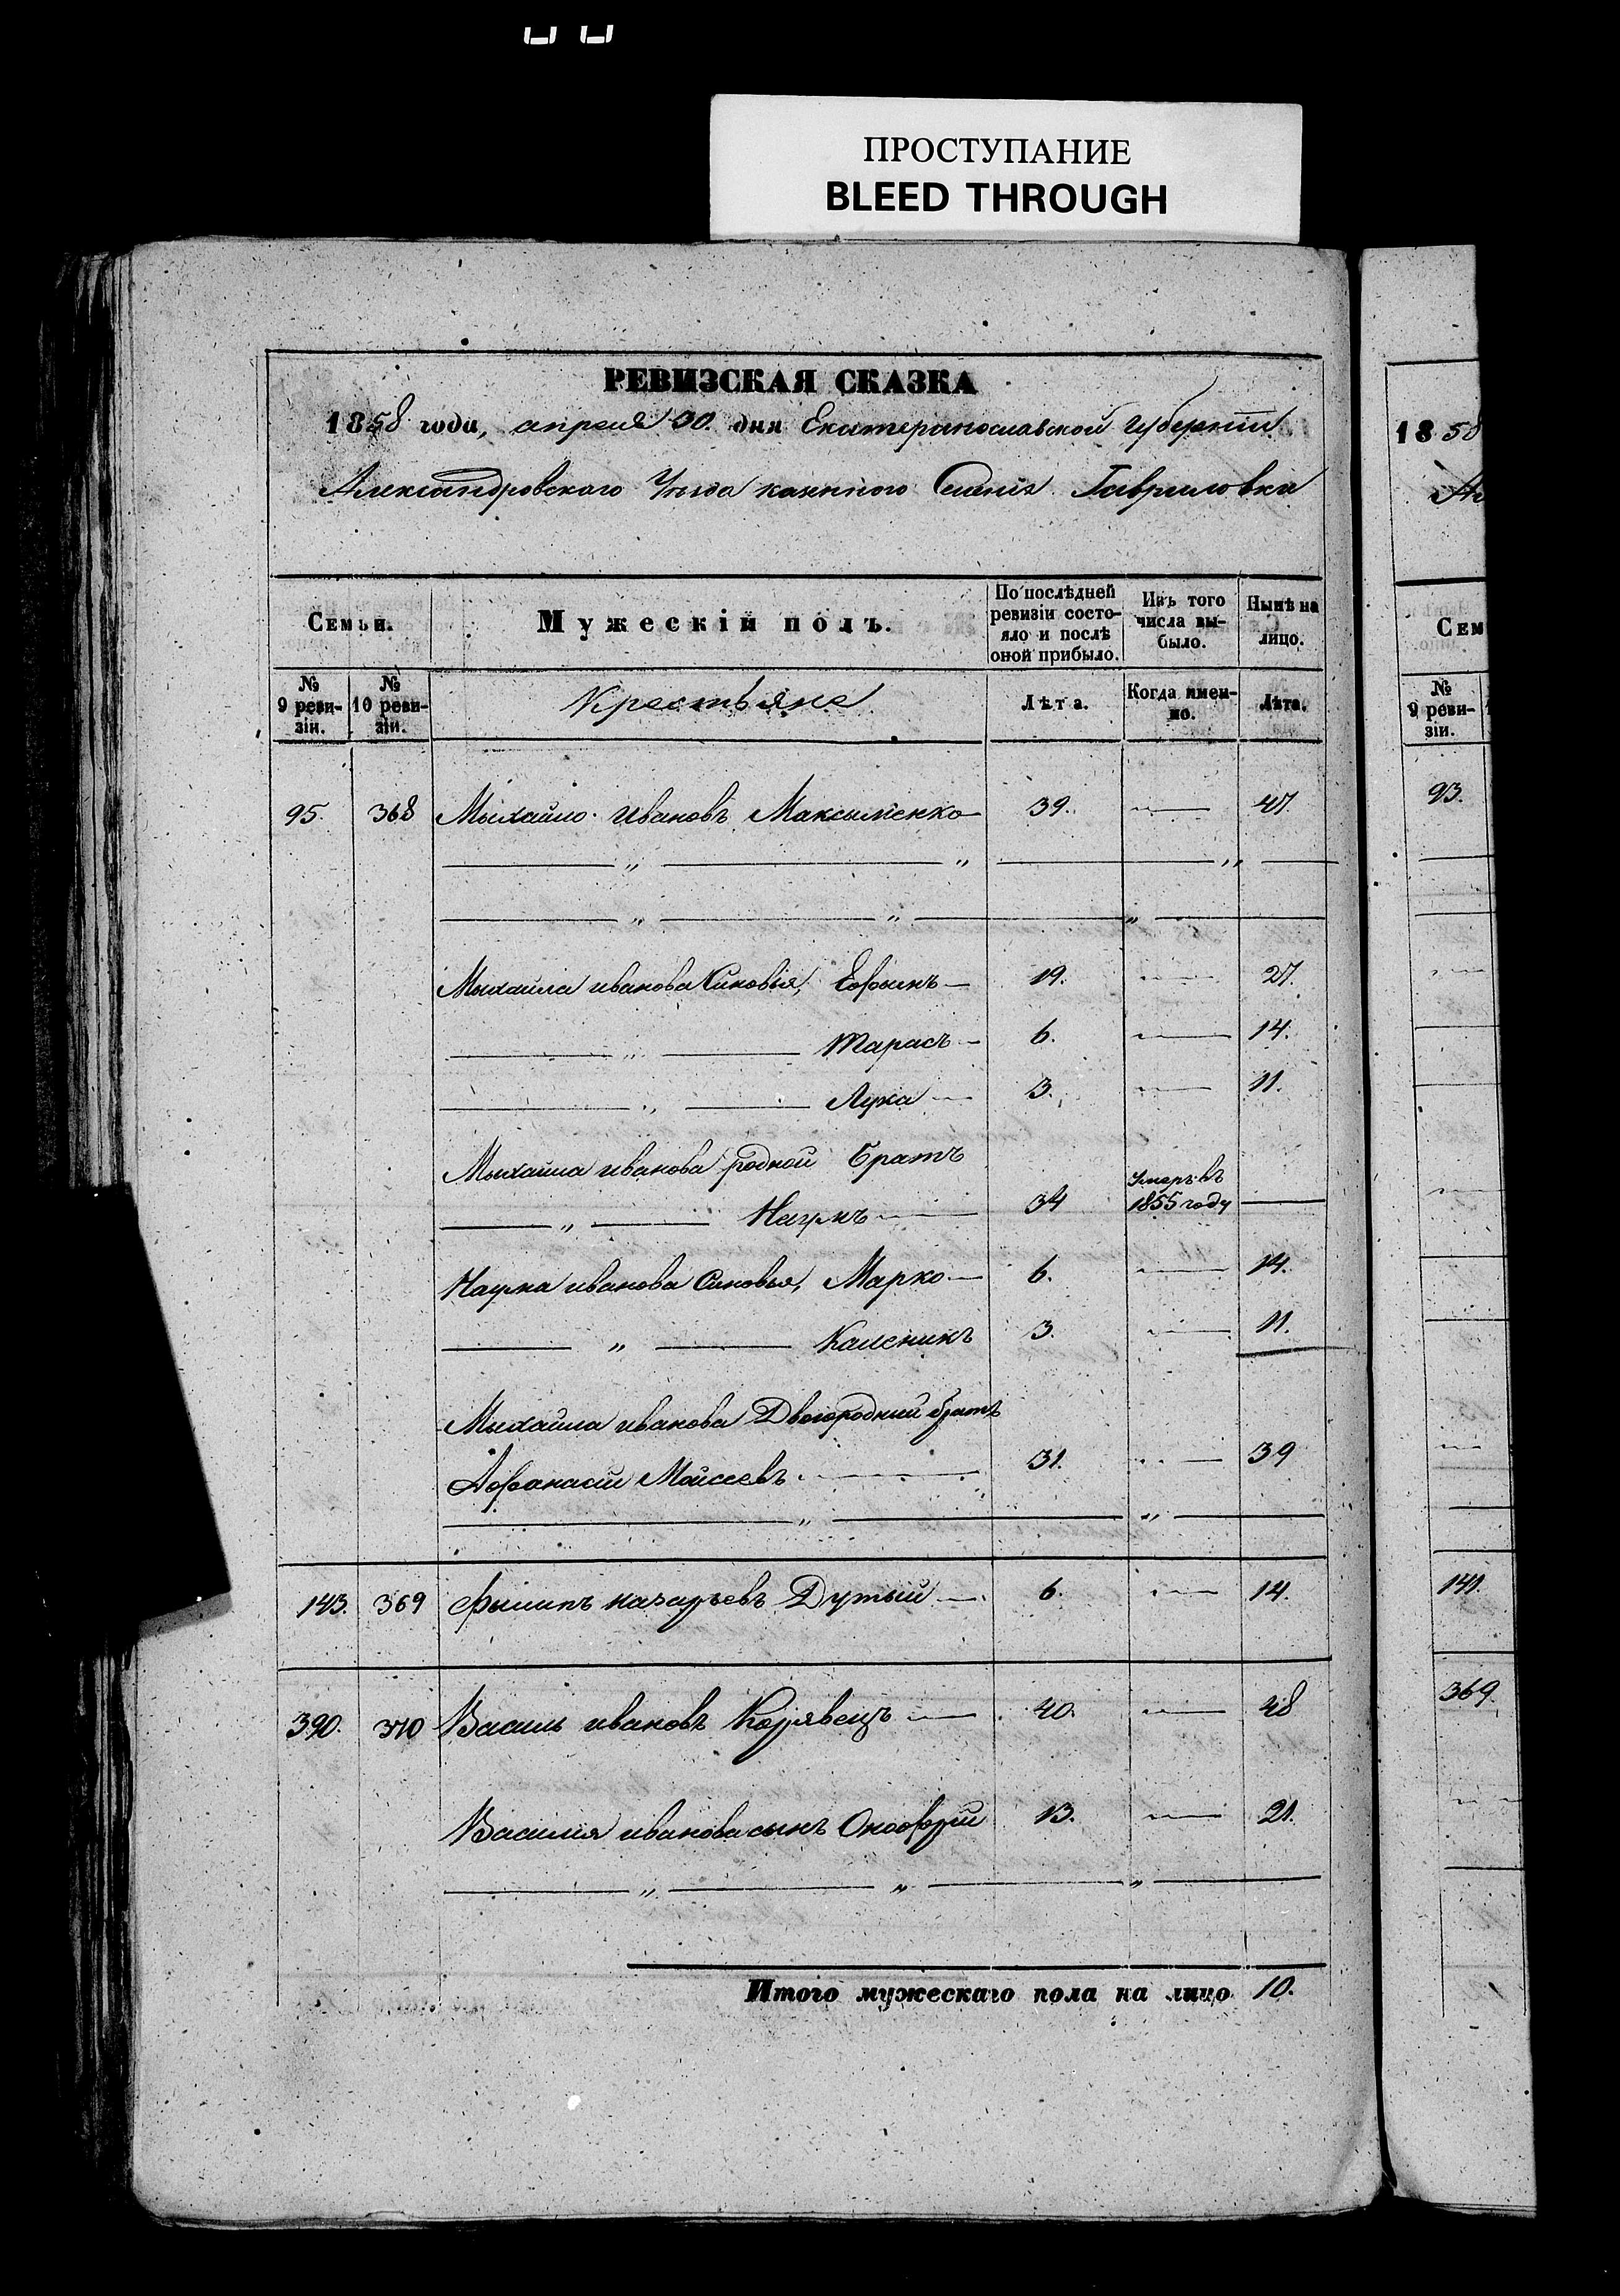 ПРОСТУПАНИЕ
BLEED THROUGH
РЕВИЗСКАЯ СКАЗКА
1858 года, апреля 30. дня Екатеринославской Губернии
Александровского Уѣзда казенного Селения Гавриловка
Семьи.
Мужескій полъ.
По послѣдней ревизіи состояло и послѣ оной прибыло.
Изъ того числа выбыло.
Нынѣ на лицо.
№ 9 ревизіи.
№ 10 ревизіи.
Крестьяне
Лѣта.
Когда именно.
Лѣта.
95. 368 Мыхайло Ивановъ Максыменко 39. — 47.
— „ — „ — „ —
— „ — „ — „ —
Мыхайла иванова Синовья, Ефымъ — 19. — 27.
— „ — Тарасъ — 6. — 14.
— „ — Лука — 3. — 11.
Мыхайла иванова родной братъ
— „ — Наумъ — 34 Умеръ въ 1855 году —
Наума иванова Синовья, Марко — 6. — 14.
— „ — Каленикъ 3. — 11.
Мыхайла иванова Двоюродний братъ
Афанасии Мойсеевъ — 31. — 39
— „ — „ —
143. 369 Фылипъ назарьевъ Дутый — 6. — 14.
390. 370 Василь ивановъ Корявецъ — 40. — 48
Василия иванова сынъ Онофрій 13. — 21.
— „ — „ — „ —
Итого мужескаго пола на лицо 10.
1858
Сем
№ 9 ревизіи.
93.
141.
369.